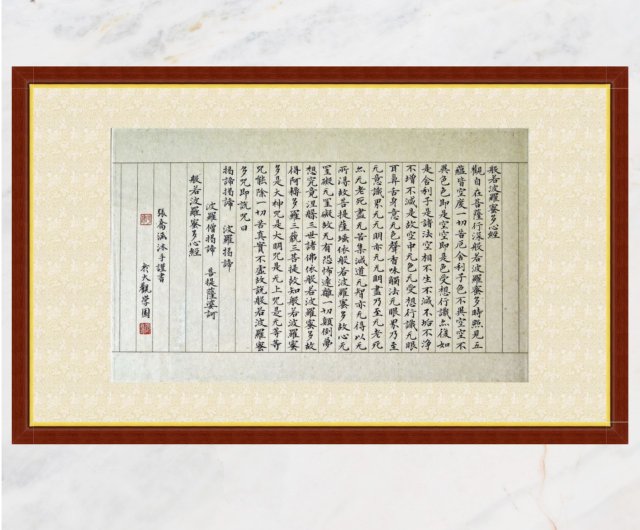 般若波羅蜜多心經
觀自在菩薩行深般若波羅蜜多時照見五
蘊皆空度一切苦厄舍利子色不異空空不
異色色即是空空即是色受想行識亦復如
是舍利子是諸法空相不生不滅不垢不淨
不增不減是故空中无色无受想行識无眼
耳鼻舌身意无色聲香味觸法无眼界乃至
无意識界无无明亦无无明盡乃至无老死
亦无老死盡无苦集滅道无智亦无得以无
所得故菩提薩埵依般若波羅蜜多故心无
罣礙无罣礙故无有恐怖遠離一切顛倒夢
想究竟涅槃三世諸佛依般若波羅蜜多故
得阿耨多羅三藐三菩提故知般若波羅蜜
多是大神咒是大明咒是无上咒是无等等
咒能除一切苦真實不虛故說般若波羅蜜
多咒即說咒曰
揭諦揭諦 波羅揭諦
波羅僧揭諦 菩提薩婆訶
般若波羅蜜多心經
張喬涵沐手謹書
於大觀学園